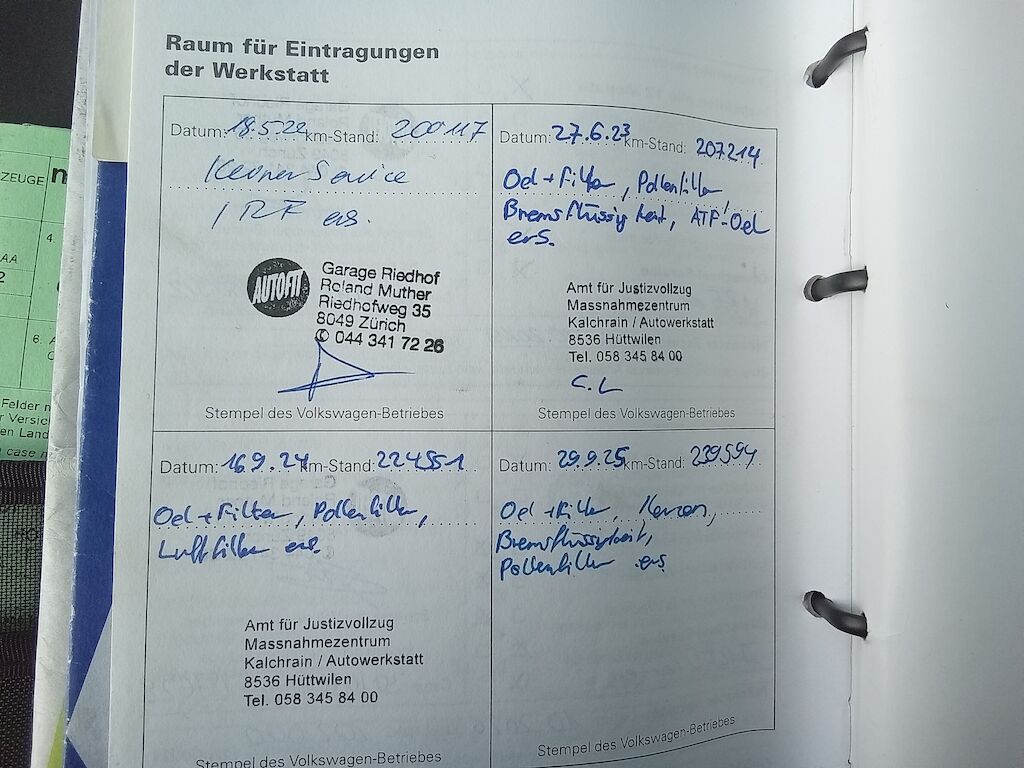 Raum für Eintragungen
der Werkstatt
Datum: 18.5.22 km-Stand: 200117
Kleiner Service
/ RF ers.
AUTOFIT
Garage Riedhof
Roland Muther
Riedhofweg 35
8049 Zürich
✆ 044 341 72 26
Stempel des Volkswagen-Betriebes
Datum: 27.6.23 km-Stand: 207214
Oel + Filter, Pollenfilter
Bremsflüssigkeit, ATF-Oel
ers.
Amt für Justizvollzug
Massnahmezentrum
Kalchrain / Autowerkstatt
8536 Hüttwilen
Tel. 058 345 84 00
C.L
Stempel des Volkswagen-Betriebes
Datum: 16 9. 24 km-Stand: 224551
Oel + Filter, Pollenfilter,
Luftfilter ers.
Amt für Justizvollzug
Massnahmezentrum
Kalchrain / Autowerkstatt
8536 Hüttwilen
Tel. 058 345 84 00
Stempel des Volkswagen-Betriebes
Datum: 29.9.25 km-Stand: 239594
Oel + Filter, Kerzen,
Bremsflüssigkeit,
Pollenfilter ers
Stempel des Volkswagen-Betriebes
ZEUGE
4.
AA
2
6. A
Felder n
r Versich
en Land
case n